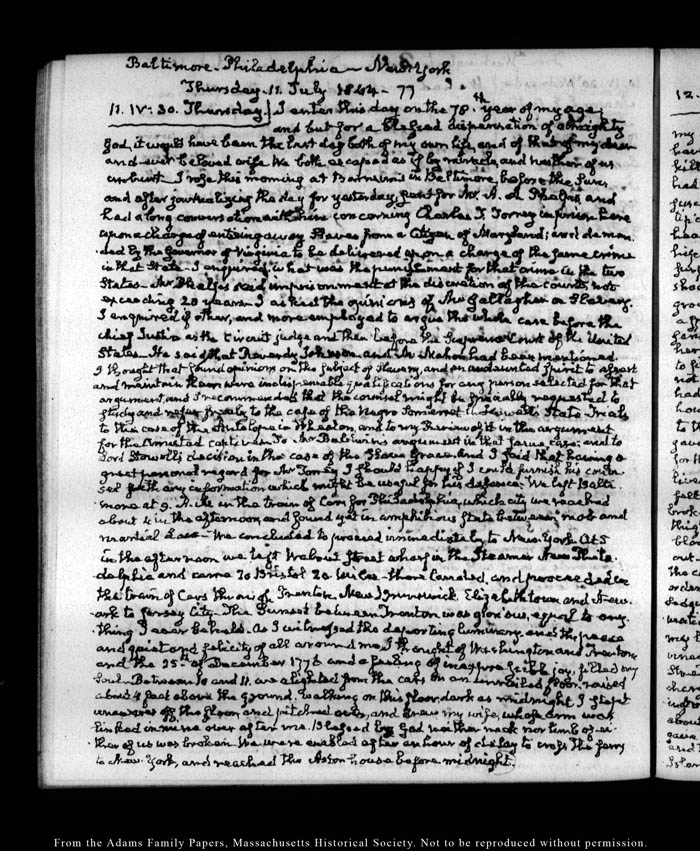 Baltimore - Philadelphia - New York
Thursday 11. July 1844 - 77
11. IV: 30. Thursday] I enter this day on the 78th year of my age,
and but for a blessed dispensation of almighty
God, it would have been the last day both of my own life, and of that of my dear
and ever beloved wife. We both escaped as if by miracle, and neither of us
unhurt. I rose this morning at Barnum's in Baltimore, before the Sun,
and after journalizing the day for yesterday, sent for Mr. A. A. Phelps, and
had a long conversation with him concerning Charles T. Torrey in prison here
upon a charge of enticing away Slaves from a Citizen of Maryland; and deman-
ded by the Governor of Virginia to be delivered upon a charge of the same crime
in that State. I enquired what was the punishment for that crime in the two
States. Mr Phelps said imprisonment at the discretion of the court, not
exceeding 20 years. I asked the opinions of Mr Gallagher on Slavery.
I enquired if other, and more employed to argue this whole case before the
chief Justice as the Circuit judge and then before the Supreme Court of the United
States. He said that Reverdy Johnson and Mr McMahon had been mentioned.
I thought that sound opinions on the subject of Slavery, and an undaunted Spirit to assert
and maintain them were indispensable qualifications for any person selected for that
argument, and I recommended that the counsel might be specially requested to
study and refer freely to the case of the Negro Somerset in Howell's State Trials
to the case of the Antelope in Wheaton, and to my Review of it in the argument
for the Amistad captives. To Mr Baldwin's argument in that same case; and to
Lord Stowell's decision in the case of the Slave Grace. And I said that having a
great personal regard for Mr Torrey I should happy if I could furnish his coun-
sel with any information which might be useful for his defence. We left Balti-
more at 9. A.M. in the train of Cars for Philadelphia, which city we reached
about 4 in the afternoon, and found yet in amphibious state between mob and
martial Law - We concluded to proceed immediately to New-York. At 5
in the afternoon we left Walnut Street wharf in the Steamer New Phila-
delphia and came to Bristol 20 miles - there landed, and proceeded in
the train of Cars through Trenton, New Brunswick, Elizabethtown and New-
ark to Jersey City. The Sunset between Trenton was glorious, equal to any
thing I ever beheld. As I witnessed the departing luminary, and the peace
and quiet and felicity of all around me, I thought of Washington and Trenton
and the 25th of December 1776 and a feeling of inexpressible joy, filled my
Soul. Between 10 and 11. we alighted from the cars on an unrailed floor, raised
about 4 feet above the ground. Walking on this floor, dark as midnight I stept
unawares off the floor, and pitched over, and drew my wife, whose arm was
linked in mine over after me. Blessed be God neither neck nor limb of ei-
ther of us was broken. We were enabled after an hour of delay to cross the ferry
to New-York, and reached the Astor house before midnight.
12.
From the Adams Family Papers, Massachusetts Historical Society. Not to be reproduced without permission.